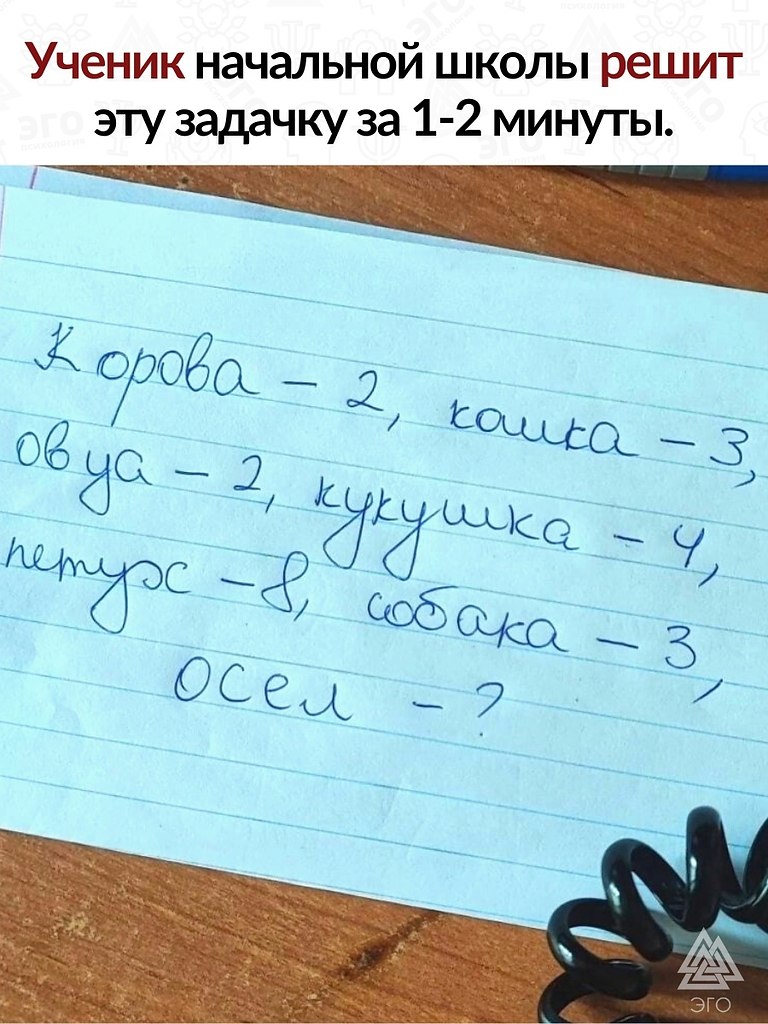 Ученик начальной школы решит
эту задачку за 1-2 минуты.
Корова - 2, кошка - 3,
овца - 2, кукушка - 4,
петух - 8, собака - 3,
осел - ?
ЭГО